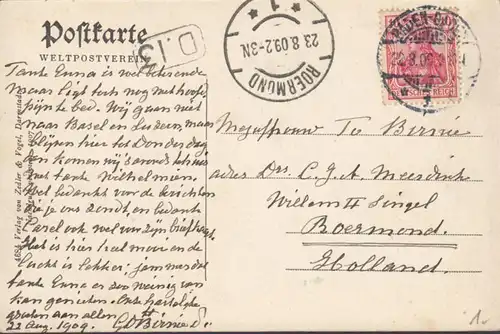 Postkarte
WELTPOSTVEREIN
D.13
ROERMOND
23.8.09.2-3N
1
BADEN-BADEN
DEUTSCHES REICH
10
Tante Enna is wel beterende
Maar ligt toch nog met hoofd
pijn te bed. Wij gaan niet
naar Basel en Luzern, maar
blijven hier tot Donderdag
dan komen wij 's avonds
tante Wilhelmien.
Wel bedankt voor de berichten
die je ons zendt, en bedank
Karel ook wel voor zijn briefkaart.
Het is hier heel mooi en de
lucht is lekker: jammer dat
tante Enna er zoo weinig van
kan genieten. Onze hartelijke
groeten aan allen
22 Aug. 1909. G Birnie
Mejuffrouw To Birnie
adres Drs. C. J. A. Meerdink
Willem II Singel
Roermond.
Holland.
Verlag von Zedler & Vogel, Darmstadt